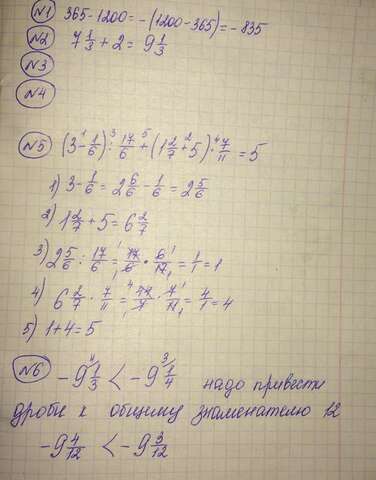 №1 365-1200=-(1200-365)=-835
№2 7 1/3 + 2 = 9 1/3
№3
№4
№5 (3-1/6):17/6+(1 2/7+5)·7/11=5
1) 3-1/6=2 6/6-1/6=2 5/6
2) 1 2/7+5=6 2/7
3) 2 5/6:17/6=17/6·6/17=1/1=1
4) 6 2/7·7/11=44/7·7/11=4/1=4
5) 1+4=5
№6 -9 1/3 < -9 1/4 надо привести
дроби к общему знаменателю 12
-9 4/12 < -9 3/12